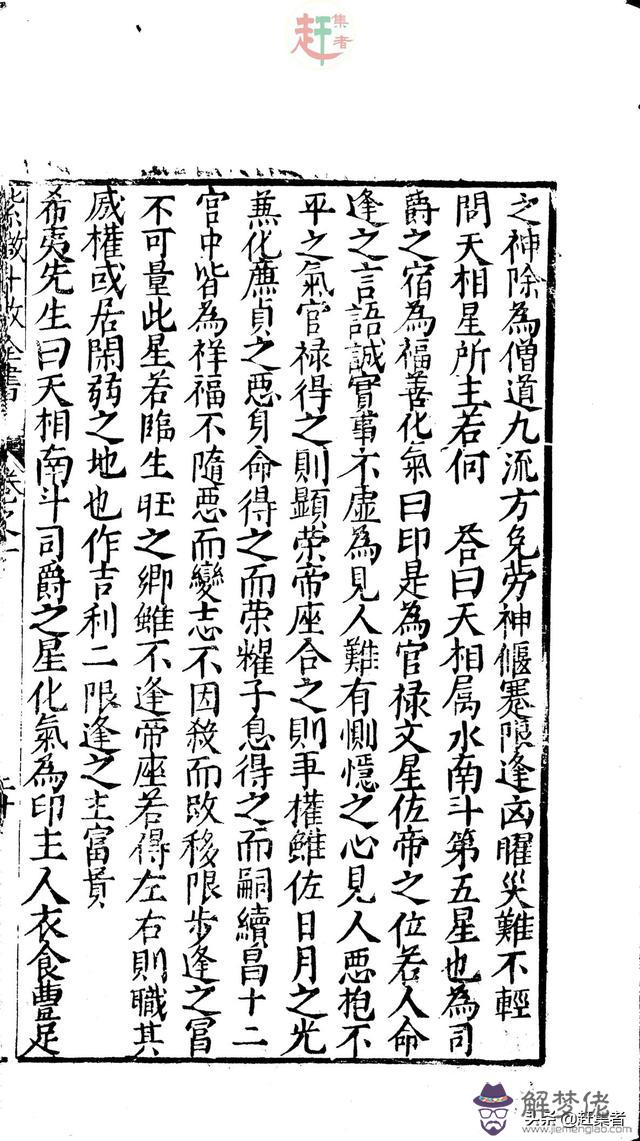 赶集者
之神除為僧道九流方免勞神偃蹇限逢凶曜災難不輕
問天相星所主若何　答曰天相属水南斗第五星也為司
爵之宿為福善化氣曰印是為官禄文星佐帝之位若人命
逢之言語誠實事不虚為見人難有惻憶之心見人悪抱不
平之氣官禄得之則顯荣帝座合之則爭權雖佐日月之光
兼化亷貞之悪身命得之而荣耀子息得之而嗣續昌十二
宫中皆為祥福不隨悪而變志不因殺而改移限步逢之冨
不可量此星若臨生旺之鄉雖不逢帝座若得左右則職其
威權或居閑弱之地也作吉利二限逢之主富貴
希夷先生曰天相南斗司爵之星化氣為印主人衣食豊足
紫微斗数全書　卷之一　二十
解梦佬
www.jiemenglab.com
头条@赶集者